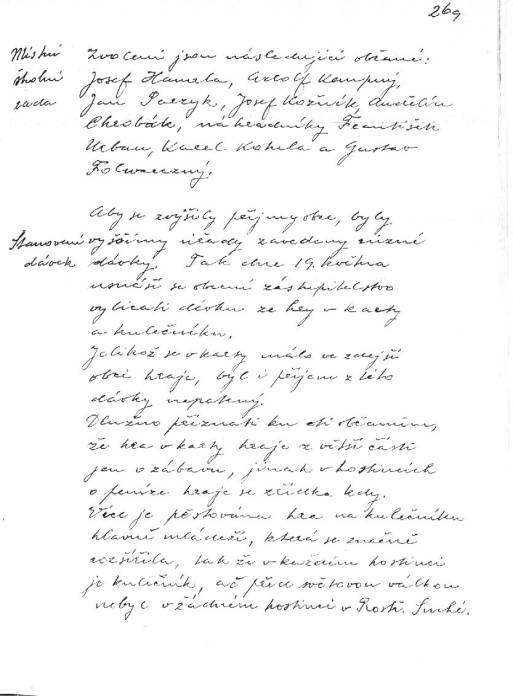 269
Místní
školní
rada
Zvoleni jsou následující občané:
Josef Hamala, Adolf Kempný,
Jan Paczyk, Josef Kožník, Andělín
Chrobák, náhradníky František
Urban, Karel Kohula a Gustav
Folwarczný.
Aby se zvýšily příjmy obce, byly
Stanovení
dávek
vyššími úřady zavedeny různé
dávky. Tak dne 19. května
usnáší se obecní zastupitelstvo
vybírati dávku ze hry v karty
a kulečníku.
Jelikož se v karty málo ve zdejší
obci hraje, byl i příjem z této
dávky nepatrný.
Dlužno přiznati ku cti občanům,
že hra v karty hraje z větší části
jen o zábavu, jinak v hostincích
o peníze hraje se zřídka kdy.
Více je pěstována hra na kulečníku
hlavně mládeží, která se značně
rozšířila, tak že v každém hostinci
je kulečník, ač před světovou válkou
nebyl v žádném hostinci v Prostř. Suché.